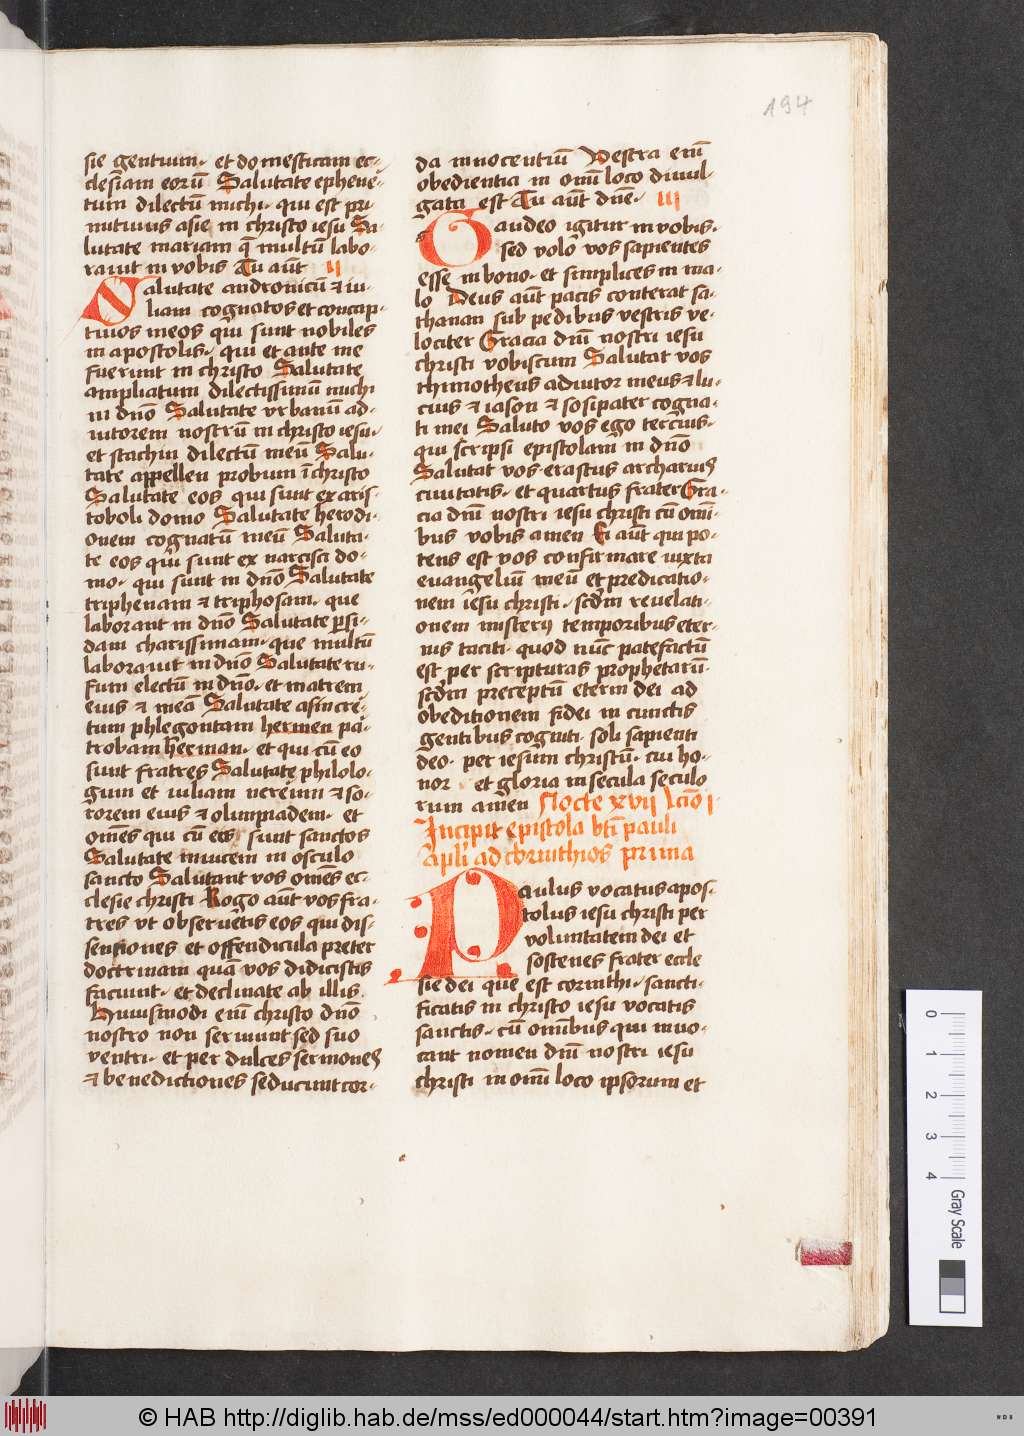 194
sie gentium. et domesticam ec-
clesiam eorū Salutate ephene-
tum dilectum michi. qui est pri
mitiuus asie in christo iesu Sa-
lutate mariam q̄ multū labo-
rauit in vobis Tu aūt II
Salutate andronicū ⁊ iu-
liam cognatos et concap-
tiuos meos qui sunt nobiles
in apostolis. qui et ante me
fuerunt in christo Salutate
ampliatum dilectissimū michi
in dn̄o Salutate vrbanū ad-
iutorem nostrū in christo iesu.
et stachin dilectū meū Salu-
tate appellen probum ī christo
Salutate eos qui sunt ex aris-
toboli domo Salutate herodi-
onem cognatū meū Saluta-
te eos qui sunt ex narcisci do-
mo. qui sunt in dn̄o Salutate
triphenam ⁊ triphosam. que
laborant in dn̄o Salutate p̱si-
dam charissimam. que multū
laborauit in dn̄o Salutate ru-
fum electū in dn̄o. et matrem
eius ⁊ meā Salutate asincre-
tum phlegontam hermen pa-
trobam herman. et qui cū eo
sunt fratres Salutate philolo-
gum et iuliam nereum ⁊ so-
rorem eius ⁊ olimpiadem. et
om̄es qui cū eis sunt sanctos
Salutate inuicem in osculo
sancto Salutant vos om̄es ec-
clesie christi Rogo aūt vos fra-
tres vt obseruetis eos qui dis-
sensiones et offendicula preter
doctrinam quā vos didicistis
faciunt. et declinate ab illis.
Huiusmodi eni̅ christo dn̄o
nostro non seruiunt sed suo
ventri. et per dulces sermones
⁊ benedictiones seducunt cor-
da innocentiū Vestra eni̅
obedientia in omi̅ loco diuul-
gata est Tu aūt dn̄e. III
Gaudeo igitur in vobis.
sed volo vos sapientes
esse in bono. et simplices in ma-
lo Deus aūt pacis conterat sa-
thanan sub pedibus vestris ve-
lociter Gracia dn̄i nostri iesu
christi vobiscum Salutat vos
thimotheus adiutor meus ⁊ lu-
cius ⁊ iason ⁊ sosipater cogna-
ti mei Saluto vos ego tercius.
qui scripsi epistolam in dn̄o
Salutat vos erastus archarius
ciuitatis. et quartus frater Gra-
cia dn̄i nostri iesu christi cū omi̅-
bus vobis amen Ei aūt qui po-
tens est vos confirmare iuxta
euangeliū meū et predicatio-
nem iesu christi. scd̄m reuelati-
onem misterij temporibus eter-
nis taciti. quod nūc patefactū
est per scripturas prophetarū.
scd̄m preceptū eterni dei ad
obeditionem fidei in cunctis
gentibus cogniti. soli sapienti
deo. per iesum christū. cui ho-
nor et gloria in secula seculo
rum amen Nocte xvii lcio̅ I
Incipit epistola bti̅ pauli
apli̅ ad chorinthios prima
Paulus vocatus apos-
tolus iesu christi per
voluntatem dei et
sostenes frater eccle
sie dei que est corinthi. sancti-
ficatis in christo iesu vocatis
sanctis. cū omi̅bus qui inuo-
cant nomen dn̄i nostri iesu
christi in omi̅ loco ipsorum et
0 1 2 3 4 Gray Scale
© HAB http://diglib.hab.de/mss/ed000044/start.htm?image=00391